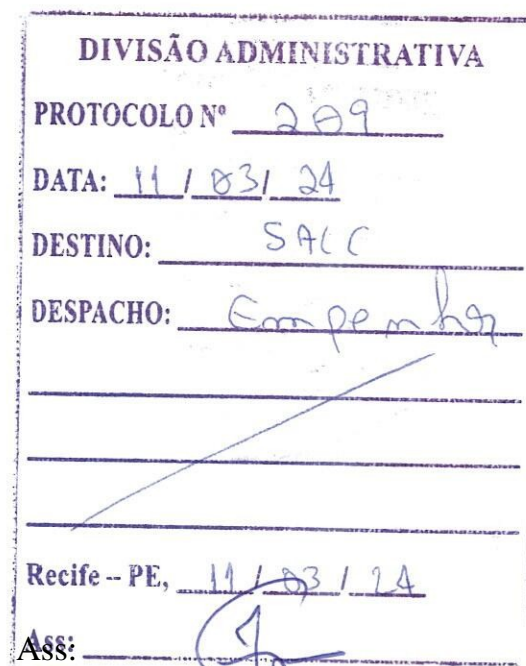 DIVISÃO ADMINISTRATIVA
PROTOCOLO Nº 209
DATA: 11 / 03 / 24
DESTINO: SALC
DESPACHO: Empenhar
Recife – PE, 11 / 03 / 24
Ass: